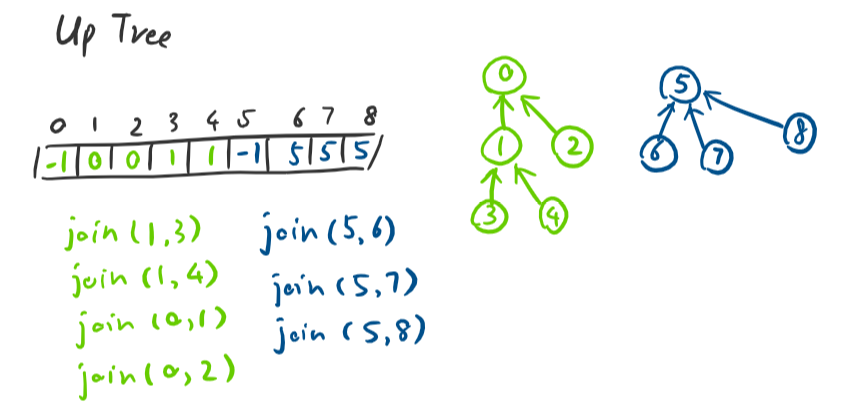 Up Tree
0 1 2 3 4 5 6 7 8
-1 0 0 1 1 -1 5 5 5
join (1,3) join (5,6)
join (1,4) join (5,7)
join (0,1) join (5,8)
join (0,2)
0
1 2
3 4
5
6 7 8